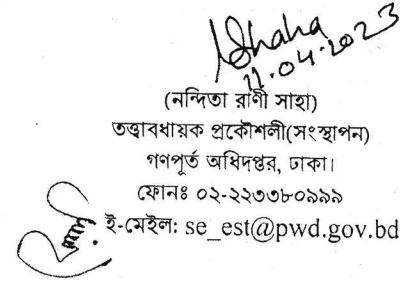 Saha
11.04.2023
(নন্দিতা রাণী সাহা)
তত্ত্বাবধায়ক প্রকৌশলী(সংস্থাপন)
গণপূর্ত অধিদপ্তর, ঢাকা।
ফোনঃ ০২-২২৩৩৮০৯৯৯
ই-মেইল: se_est@pwd.gov.bd